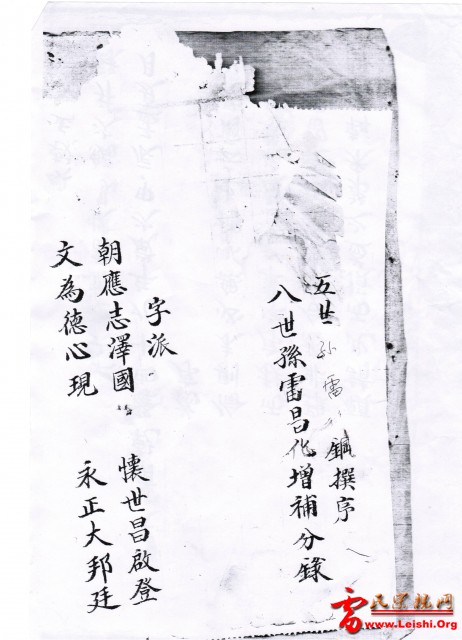 五世孙雷撰序
八世孫雷昌化增補分錄
字派
朝應志澤國 懷世昌啟登
文為德心現 永正大邦廷
雷氏宗親网
www.Leishi.Org